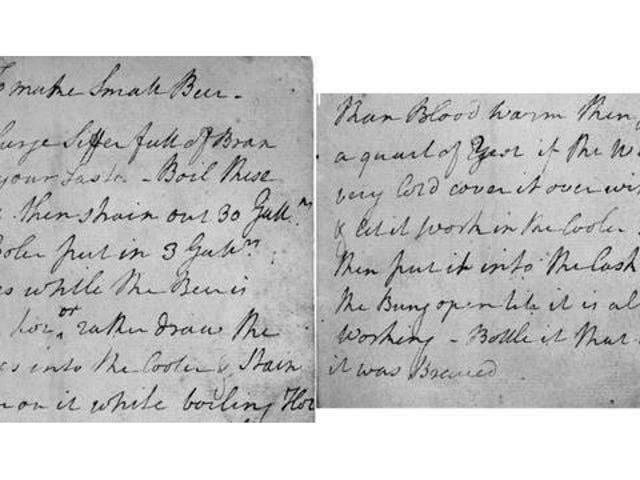 To make Small Beer -
Large Siffer full of Bran
your Taste - Boil these
then strain out 30 Gall.n
ooler put in 3 Gall.n
es while the Beer is
hot or rather draw the
es into the Cooler & Strain
r on it while boiling Hot
than Blood warm then
a quart of Yest if the We
very Cold cover it over wi
& let it Work in the Cooler
then put it into the Cask
the Bung open til it is al
Working - Bottle it that
it was Brewed